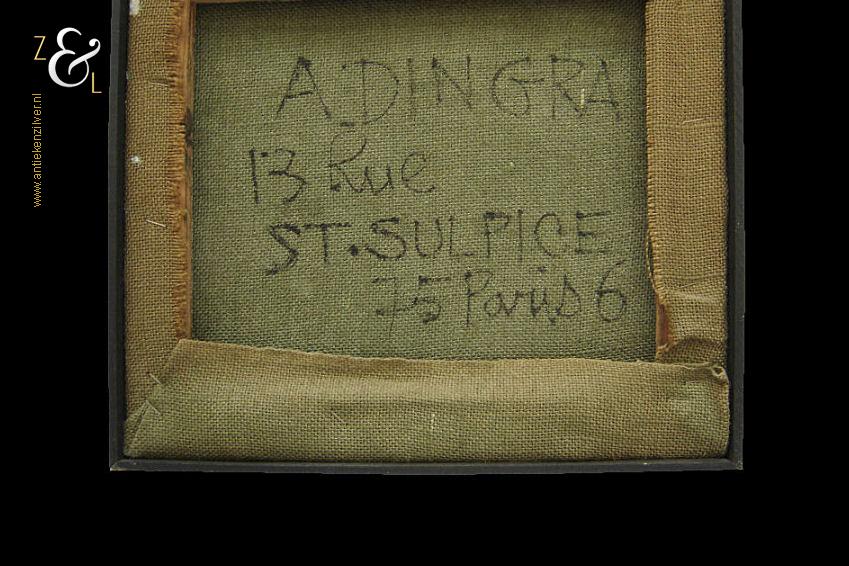 Z & L
www.antiekenzilver.nl
A. DINGRA
13 Rue
ST. SULPICE
75 Paris 6